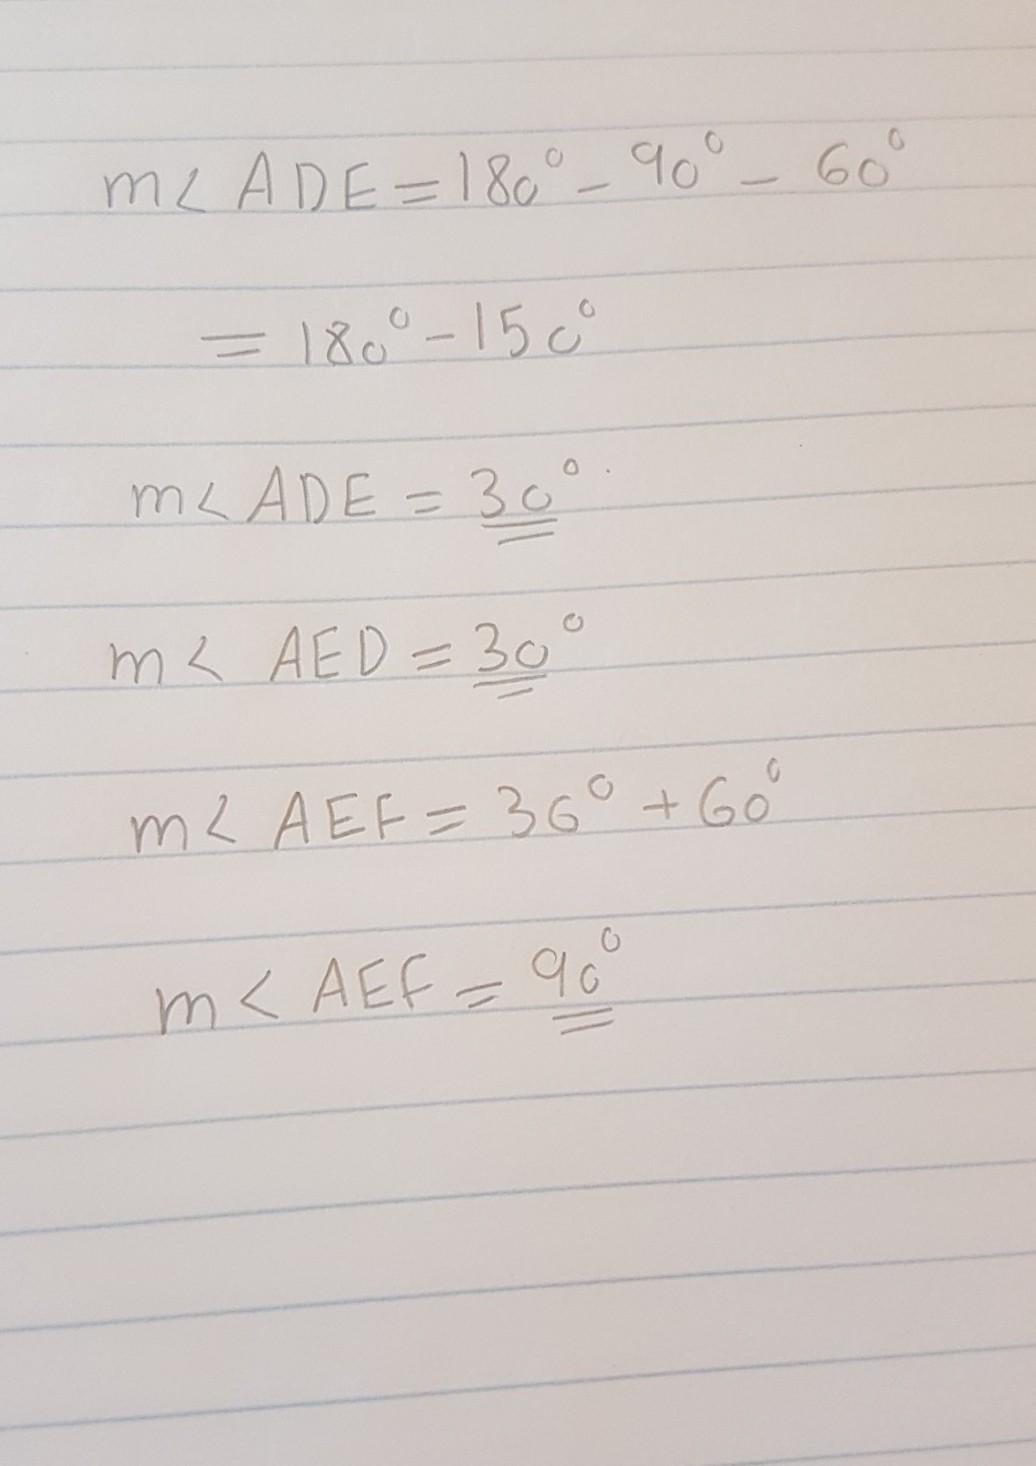 m< ADE = 180° - 90° - 60°
= 180° - 150°
m< ADE = 30°
m< AED = 30°
m< AEF = 30° + 60°
m< AEF = 90°